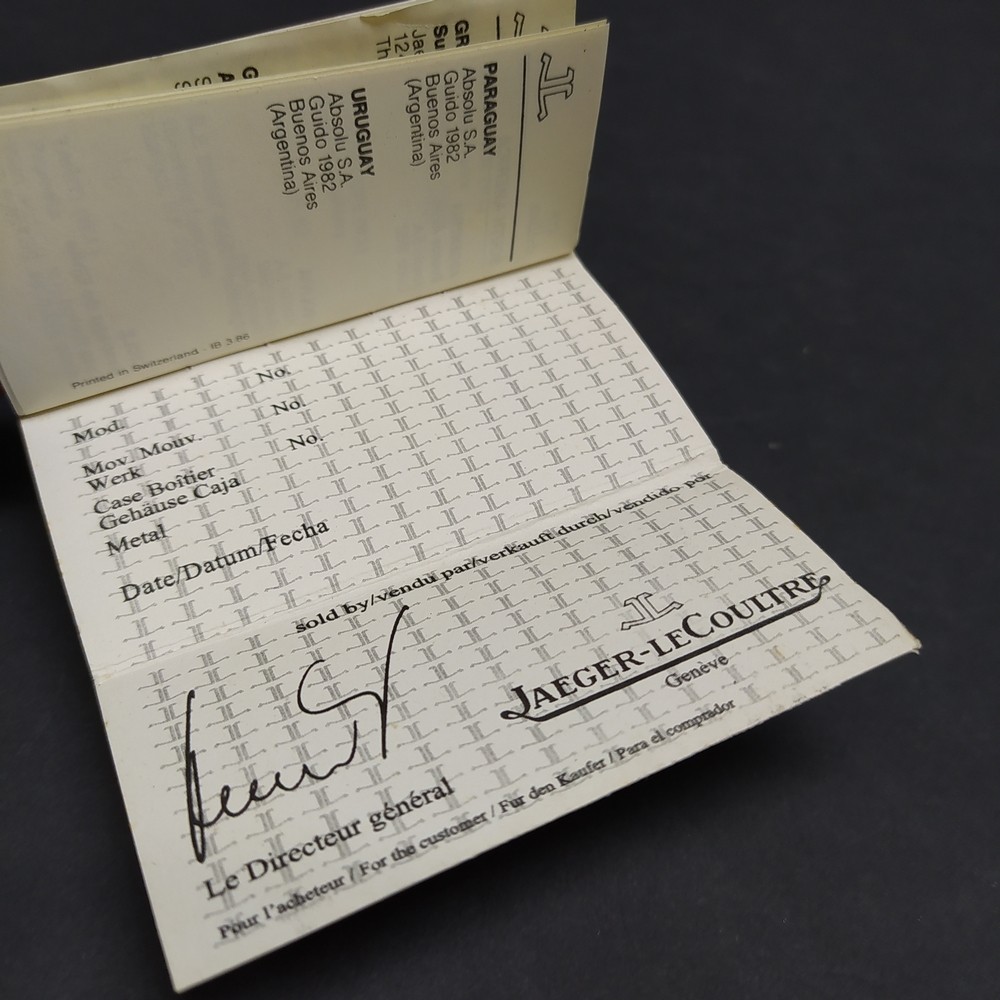 GR
Su
Jae
12
Th
G
A
PARAGUAY
Absolu S.A.
Guido 1982
Buenos Aires
(Argentina)
URUGUAY
Absolu S.A.
Guido 1982
Buenos Aires
(Argentina)
Printed in Switzerland - IB 3.86
Mod. No.
Mov. Mouv. No.
Werk
Case Boîtier No.
Gehäuse Caja
Metal
Date/Datum/Fecha
sold by/vendu par/verkauft durch/vendido por
JL
JAEGER-LECOULTRE
Genève
Le Directeur général
Pour l'acheteur / For the customer / Für den Kaufer / Para el comprador